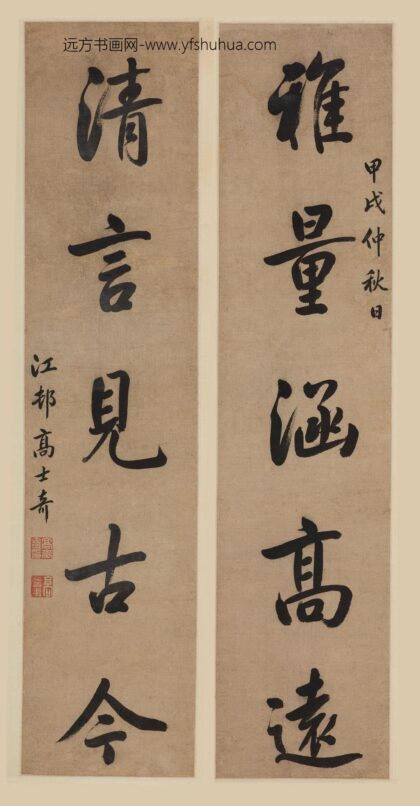 远方书画网-www.yfshuhua.com
甲戌仲秋日
雅量涵高遠
清言見古今
江邨高士奇